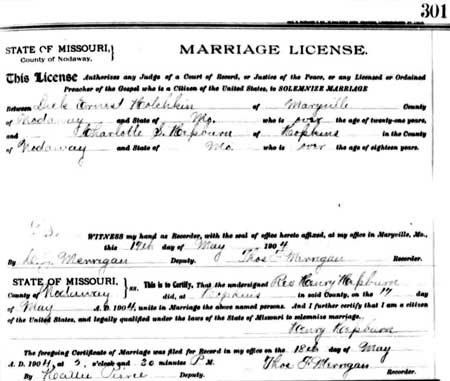 301
STATE OF MISSOURI,
County of Nodaway.
MARRIAGE LICENSE.
This License Authorizes any Judge of a Court of Record, or Justice of the Peace, or any Licensed or Ordained
Preacher of the Gospel who is a Citizen of the United States, to SOLEMNIZE MARRIAGE
Between Dick Ernest Hotchkin of Maryville County
of Nodaway and State of Mo. who is over the age of twenty-one years,
and Charlotte S. Hepburn of Hopkins in the County
of Nodaway and State of Mo. who is over the age of eighteen years.
WITNESS my hand as Recorder, with the seal of office hereto affixed, at my office in Maryville, Mo.,
this 17th day of May 1904
By Merrigan Deputy. Thos F Merrigan Recorder.
STATE OF MISSOURI,
County of Nodaway ss. This is to Certify, That the undersigned Rev Henry Hepburn
did, at Hopkins in said County, on the 17 day
of May A. D. 1904, unite in Marriage the above named persons. And I further certify that I am a citizen
of the United States, and legally qualified under the laws of the State of Missouri to solemnize marriage.
Henry Hepburn
The foregoing Certificate of Marriage was filed for Record in my office on the 18th day of May
A. D. 1904 at 5 o'clock and 30 minutes P. M.
Thos F Merrigan Recorder.
By Deputy.